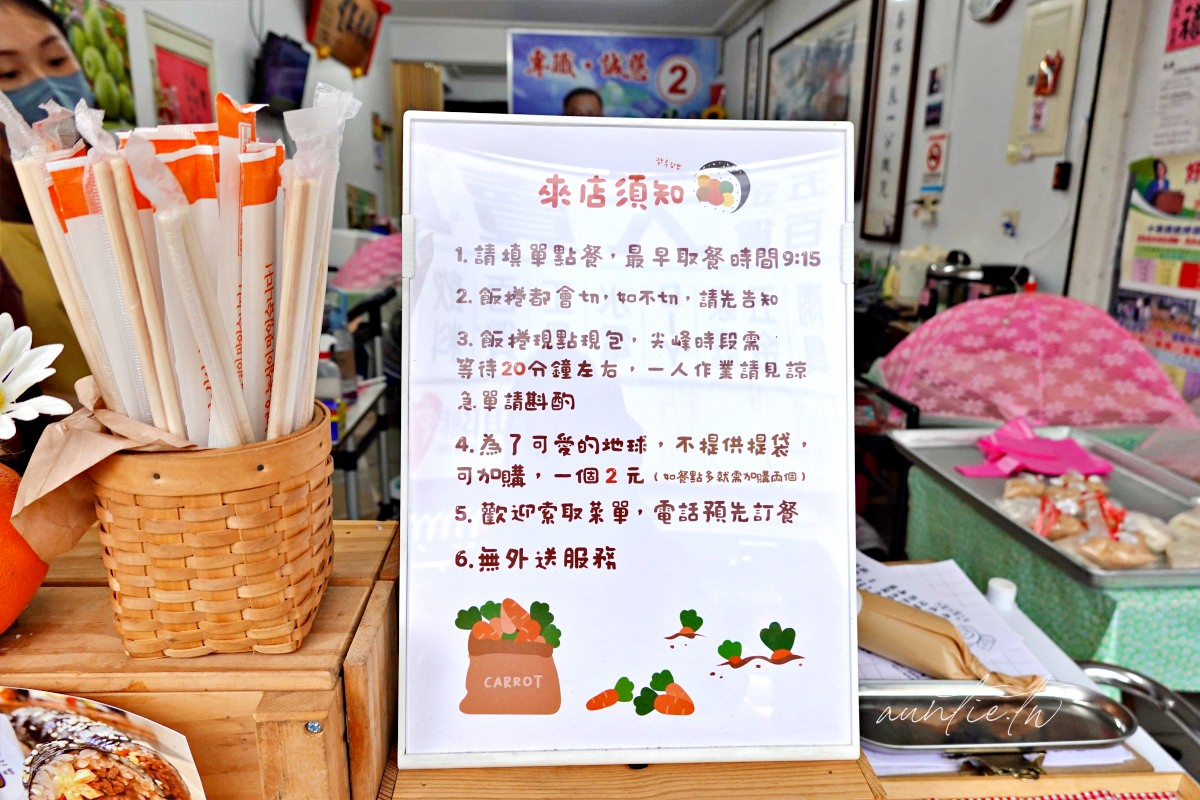 專職·誠懇 2
來店須知
1. 請填單點餐，最早取餐時間9:15
2. 飯捲都會切，如不切，請先告知
3. 飯捲現點現包，尖峰時段需
等待20分鐘左右，一人作業請見諒
急單請斟酌
4. 為了可愛的地球，不提供提袋，
可加購，一個2元（如餐點多就需加購兩個）
5. 歡迎索取菜單，電話預先訂餐
6. 無外送服務
CARROT
auntie.tw